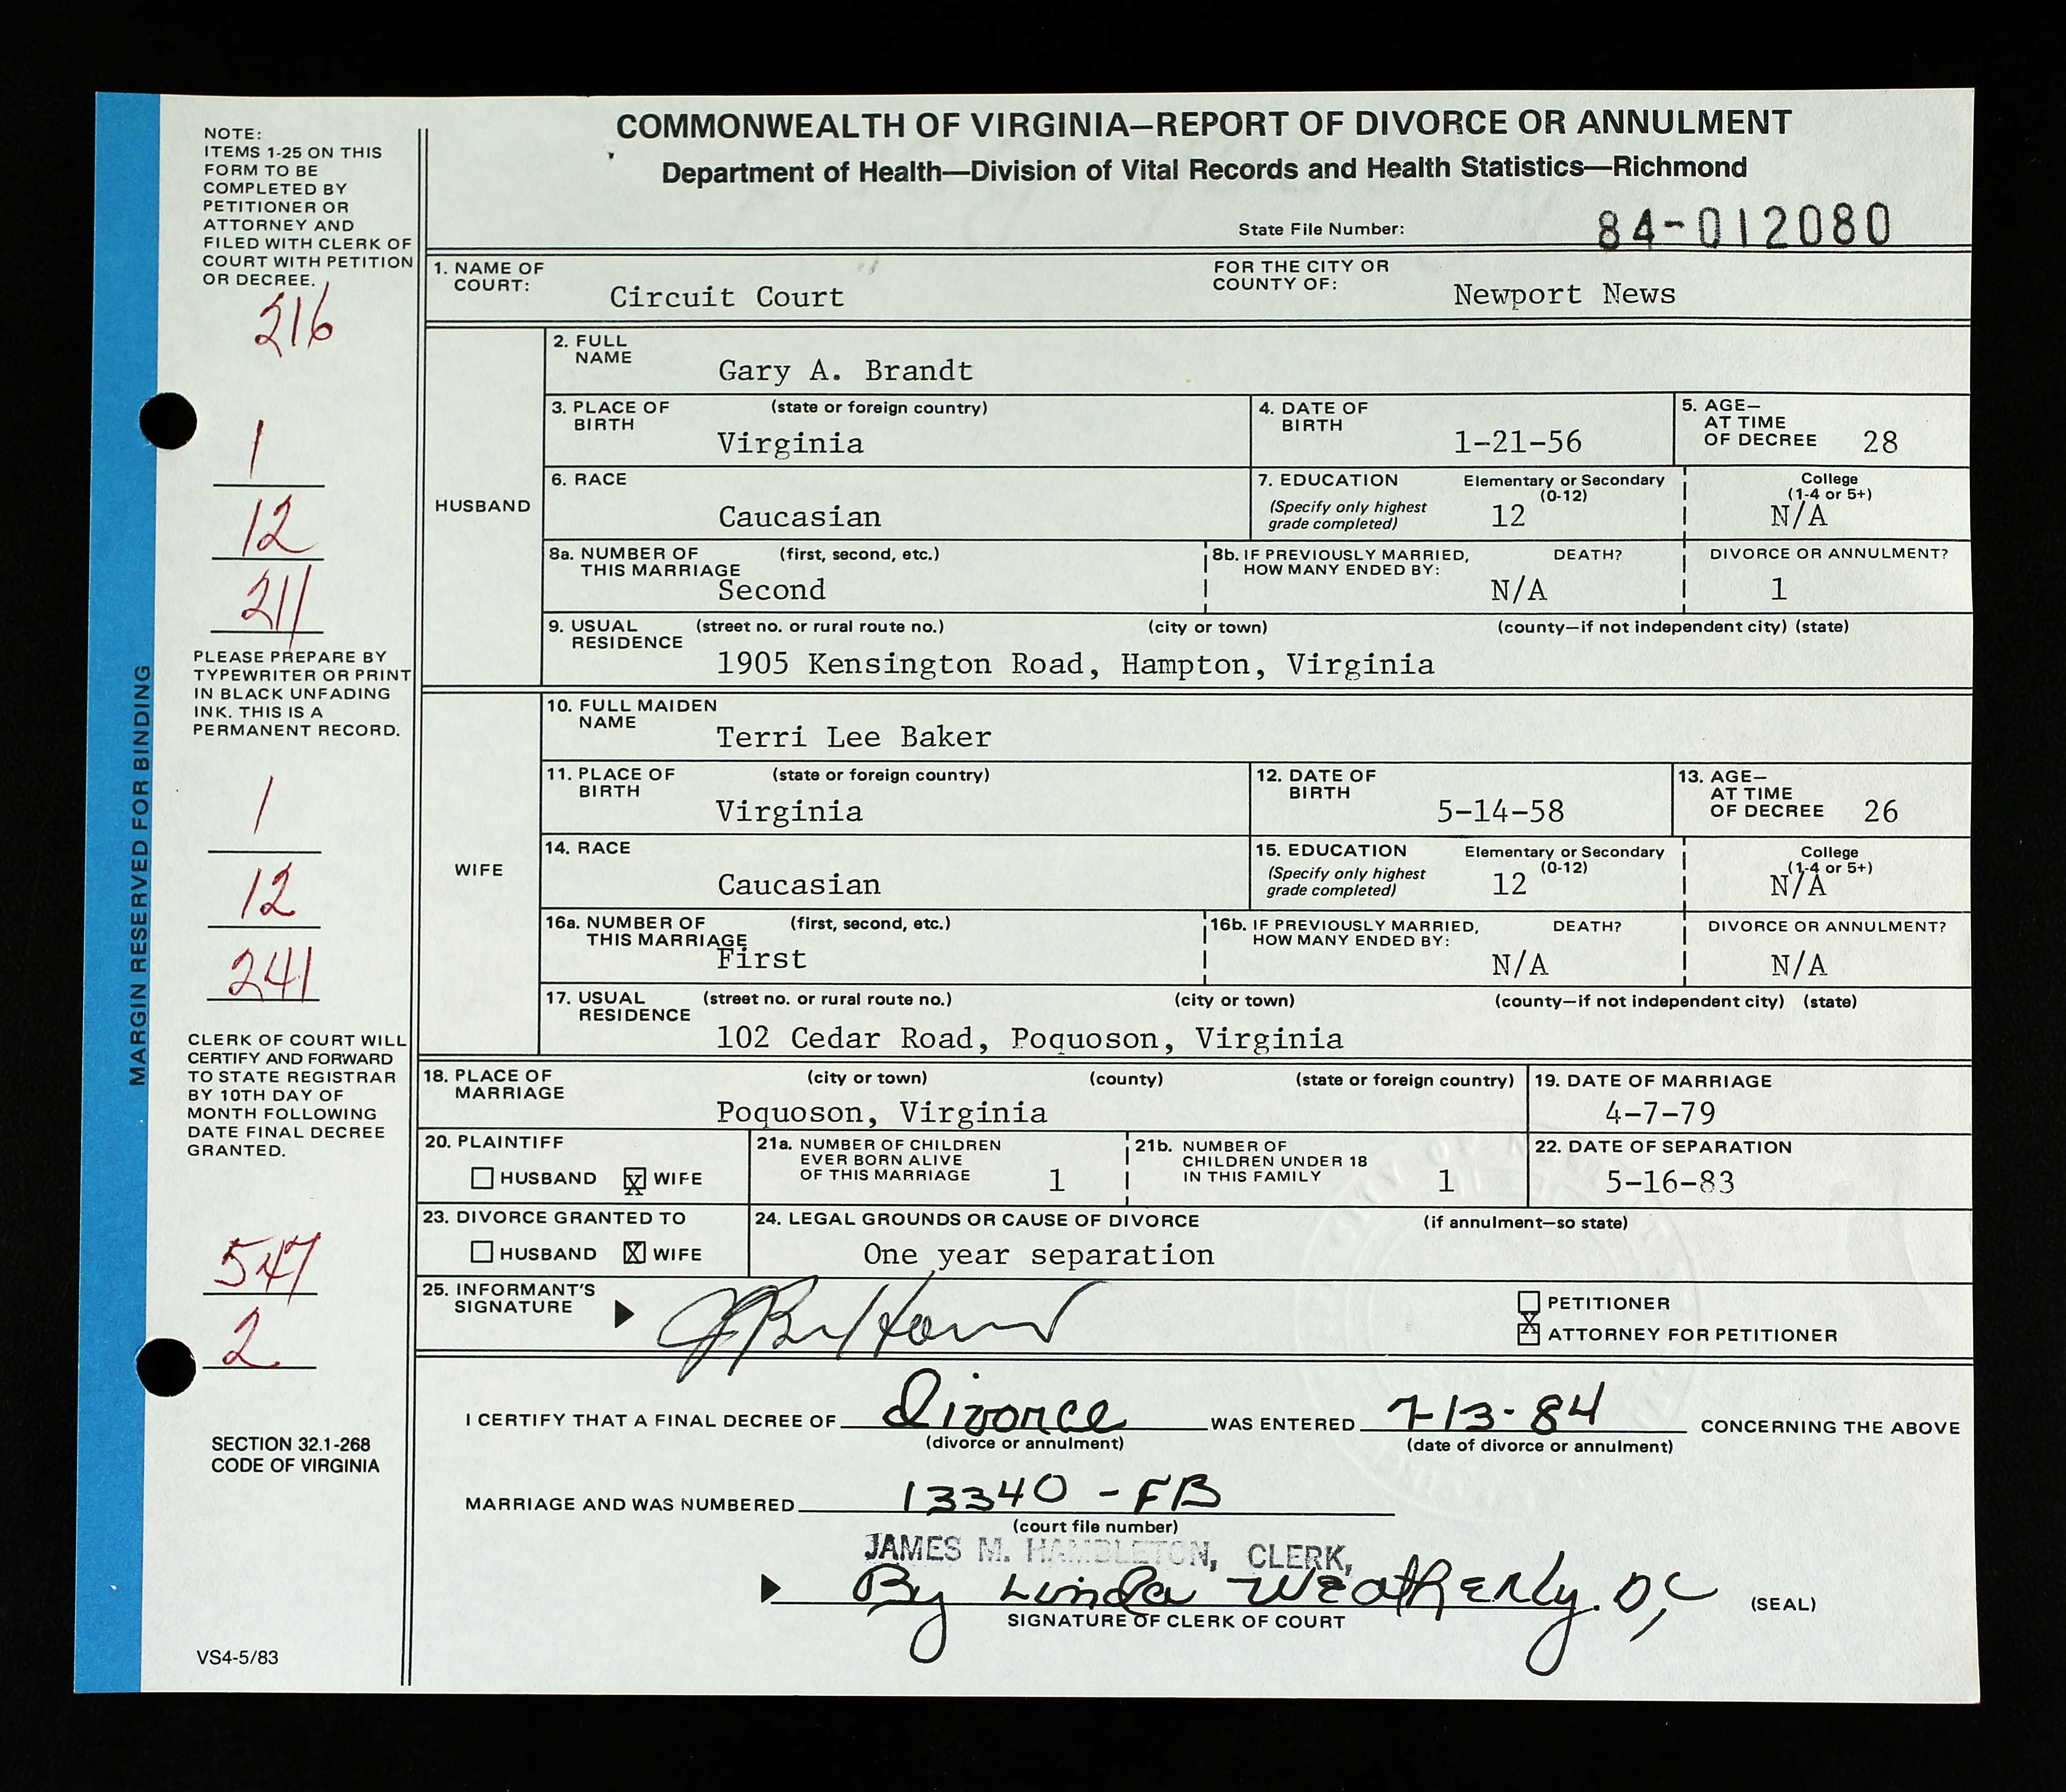 COMMONWEALTH OF VIRGINIA—REPORT OF DIVORCE OR ANNULMENT
Department of Health—Division of Vital Records and Health Statistics—Richmond
State File Number: 84-012080
NOTE:
ITEMS 1-25 ON THIS
FORM TO BE
COMPLETED BY
PETITIONER OR
ATTORNEY AND
FILED WITH CLERK OF
COURT WITH PETITION
OR DECREE.
216
1
12
211
PLEASE PREPARE BY
TYPEWRITER OR PRINT
IN BLACK UNFADING
INK. THIS IS A
PERMANENT RECORD.
1
12
241
CLERK OF COURT WILL
CERTIFY AND FORWARD
TO STATE REGISTRAR
BY 10TH DAY OF
MONTH FOLLOWING
DATE FINAL DECREE
GRANTED.
547
2
SECTION 32.1-268
CODE OF VIRGINIA
VS4-5/83
MARGIN RESERVED FOR BINDING
1. NAME OF
COURT: Circuit Court
FOR THE CITY OR
COUNTY OF: Newport News
HUSBAND
2. FULL
NAME Gary A. Brandt
3. PLACE OF
BIRTH (state or foreign country)
Virginia
4. DATE OF
BIRTH 1-21-56
5. AGE—
AT TIME
OF DECREE 28
6. RACE
Caucasian
7. EDUCATION
(Specify only highest
grade completed)
Elementary or Secondary
(0-12)
12
College
(1-4 or 5+)
N/A
8a. NUMBER OF (first, second, etc.)
THIS MARRIAGE
Second
8b. IF PREVIOUSLY MARRIED,
HOW MANY ENDED BY:
DEATH?
N/A
DIVORCE OR ANNULMENT?
1
9. USUAL (street no. or rural route no.) (city or town) (county—if not independent city) (state)
RESIDENCE
1905 Kensington Road, Hampton, Virginia
WIFE
10. FULL MAIDEN
NAME
Terri Lee Baker
11. PLACE OF (state or foreign country)
BIRTH
Virginia
12. DATE OF
BIRTH
5-14-58
13. AGE—
AT TIME
OF DECREE 26
14. RACE
Caucasian
15. EDUCATION
(Specify only highest
grade completed)
Elementary or Secondary
(0-12)
12
College
(1-4 or 5+)
N/A
16a. NUMBER OF (first, second, etc.)
THIS MARRIAGE
First
16b. IF PREVIOUSLY MARRIED,
HOW MANY ENDED BY:
DEATH?
N/A
DIVORCE OR ANNULMENT?
N/A
17. USUAL (street no. or rural route no.) (city or town) (county—if not independent city) (state)
RESIDENCE
102 Cedar Road, Poquoson, Virginia
18. PLACE OF (city or town) (county) (state or foreign country)
MARRIAGE
Poquoson, Virginia
19. DATE OF MARRIAGE
4-7-79
20. PLAINTIFF
HUSBAND X WIFE
21a. NUMBER OF CHILDREN
EVER BORN ALIVE
OF THIS MARRIAGE 1
21b. NUMBER OF
CHILDREN UNDER 18
IN THIS FAMILY 1
22. DATE OF SEPARATION
5-16-83
23. DIVORCE GRANTED TO
HUSBAND X WIFE
24. LEGAL GROUNDS OR CAUSE OF DIVORCE (if annulment—so state)
One year separation
25. INFORMANT'S
SIGNATURE
PETITIONER
X ATTORNEY FOR PETITIONER
I CERTIFY THAT A FINAL DECREE OF Divorce WAS ENTERED 7-13-84 CONCERNING THE ABOVE
(divorce or annulment) (date of divorce or annulment)
MARRIAGE AND WAS NUMBERED 13340-FB
(court file number)
JAMES M. HAMBLETON, CLERK,
By Linda Weatherly. D,C (SEAL)
SIGNATURE OF CLERK OF COURT